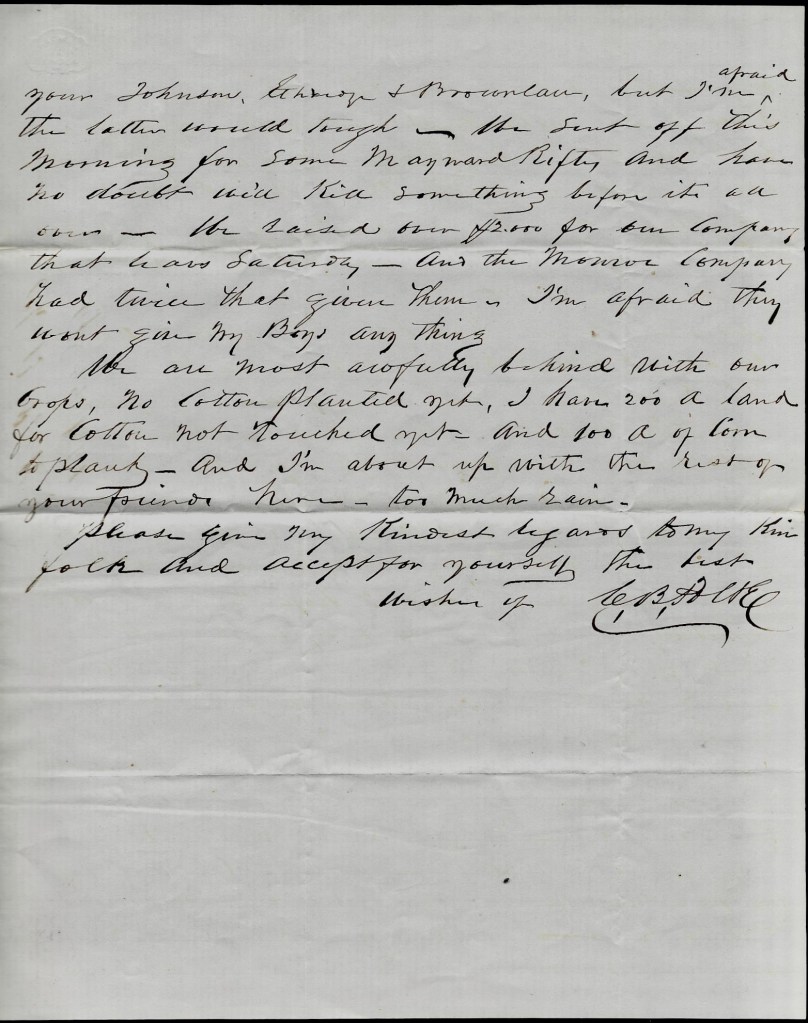 your Johnson, Etheridge & Brownlau, but I'm afraid
the latter would tough — We sent off this
Morning for some Maynard Rifles and have
no doubt we'll Kill something before its all
over — We raised over $2.000 for our Company
that leavs Saturday — And the Monroe Company
had twice that given them — I'm afraid they
wont give my Boys any thing
We are most awfully behind with our
Crops, no Cotton planted yet, I have 200 a land
for Cotton not touched yet — And 100 a of Corn
to plant — And I'm about up with the rest of
your friends here — too much rain —
please give my Kindest regards to my Kin
folk and accept for yourself the best
wishes of C, B,